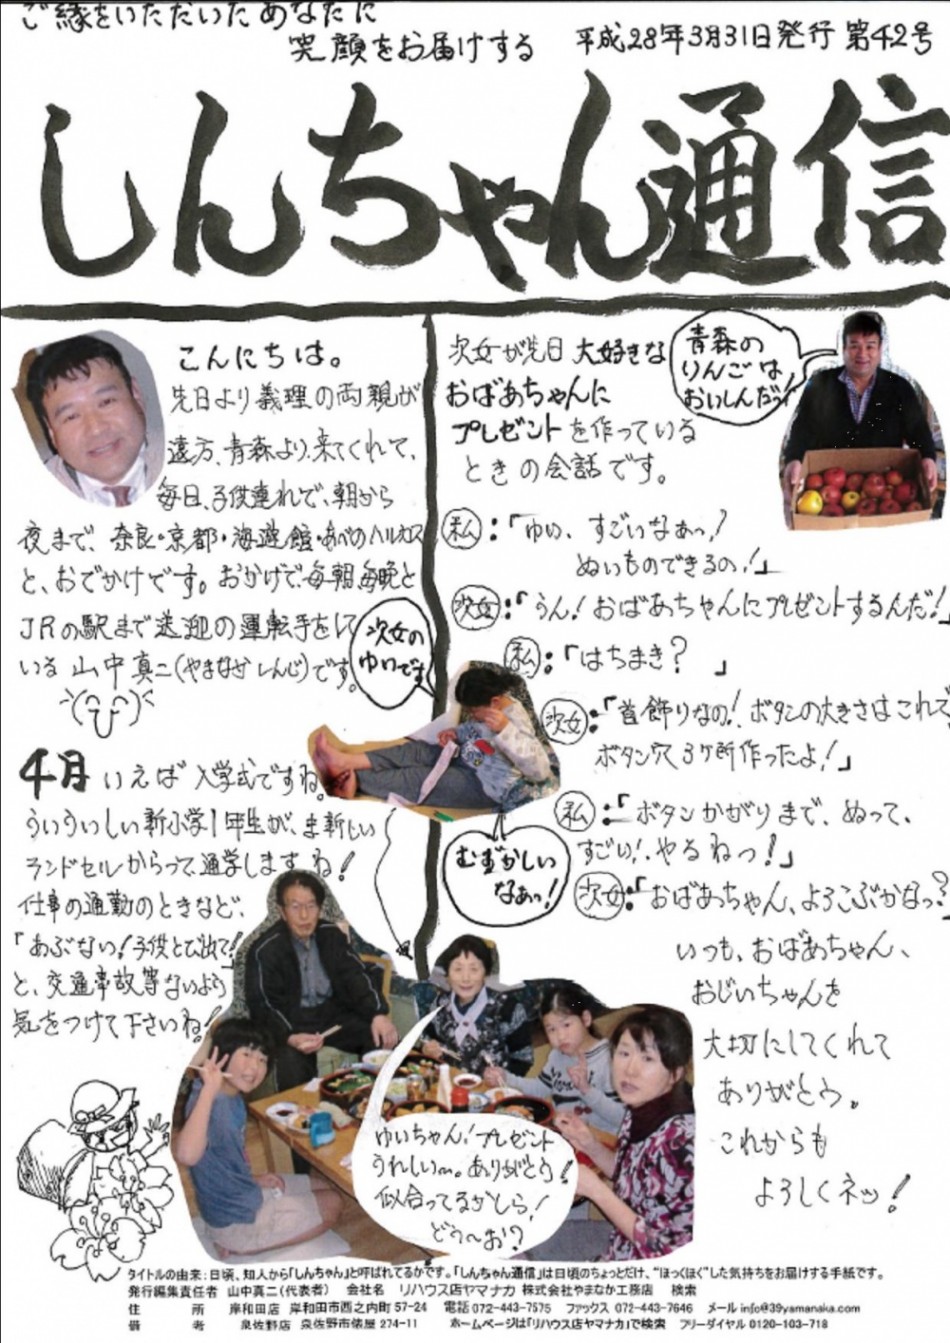 ご縁をいただいたあなたに
笑顔をお届けする
平成28年3月31日発行 第42号
しんちゃん通信
こんにちは。
先日より義理の両親が
遠方、青森より、来てくれて、
毎日、子供連れで、朝から
夜まで、奈良・京都・海遊館・あべのハルカス
と、おでかけです。おかげで、毎朝、毎晩と
JRの駅まで送迎の運転手をして
いる 山中真二(やまなか しんじ)です。
次女の
ゆいです
4月 いえば 入学式ですね。
ういういしい新小学1年生が、ま新しい
ランドセルからって、通学しますね!
仕事の通勤のときなど、
「あぶない!子供とび出て!」
と、交通事故等ないよう
気をつけて下さいね!
次女が先日 大好きな
おばあちゃんに
プレゼントを作っている
ときの会話です。
青森の
りんごは
おいしんだっ!
私:「ゆい、すごいなぁっ!
ぬいものできるの!」
次女:「うん!おばあちゃんにプレゼントするんだ!」
私:「はちまき? 」
次女:「首飾りなの!ボタンの大きさはこれで、
ボタン穴3ヶ所作ったよ!」
私:「ボタンかがりまで、ぬって、
すごい!、やるねっ!」
次女:「おばあっちゃん、よろこぶかなっ?
むずかしい
なぁっ!
いつも、おばあちゃん、
おじいちゃんを
大切にしてくれて
ありがとう。
これからも
よろしくネッ!
ゆいちゃん!プレゼント
うれしい〜。ありがとう!
似合ってるかしら!
どう〜お?
タイトルの由来:日頃、知人から「しんちゃん」と呼ばれてるかです。「しんちゃん通信」は日頃のちょっとだけ、“ほっくほく”した気持ちをお届けする手紙です。
発行編集責任者 山中真二(代表者) 会社名 リハウス店ヤマナカ 株式会社やまなか工務店 検索
住 所 岸和田店 岸和田市西之内町57-24 電話072-443-7575 ファックス 072-443-7646 メール info@39yamanaka.com
備 考 泉佐野店 泉佐野市俵屋274-11 ホームページは「リハウス店ヤマナカ」で検索 フリーダイヤル 0120-103-718